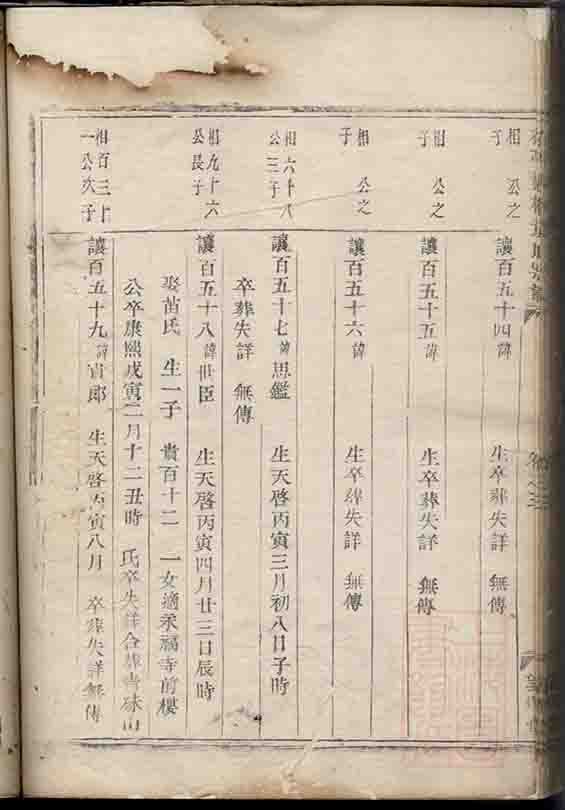 相 公之
子
讓百五十四諱 生卒葬失詳 無傳
相 公之
子
讓百五十五諱 生卒葬失詳 無傳
相 公之
子
讓百五十六諱 生卒葬失詳 無傳
相六十八
公三子
讓百五十七諱思鑑 生天啓丙寅三月初八日子時
卒葬失詳 無傳
相九十六
公長子
讓百五十八諱世臣 生天啓丙寅四月廿三日辰時
娶苗氏 生一子 貴百十二 一女適禾福寺前樓
公卒康熙戊寅二月十二丑時 氏卒失詳合葬青珠山
相百三十
一公次子
讓百五十九諱 郎 生天啓丙寅八月 卒葬失詳無傳